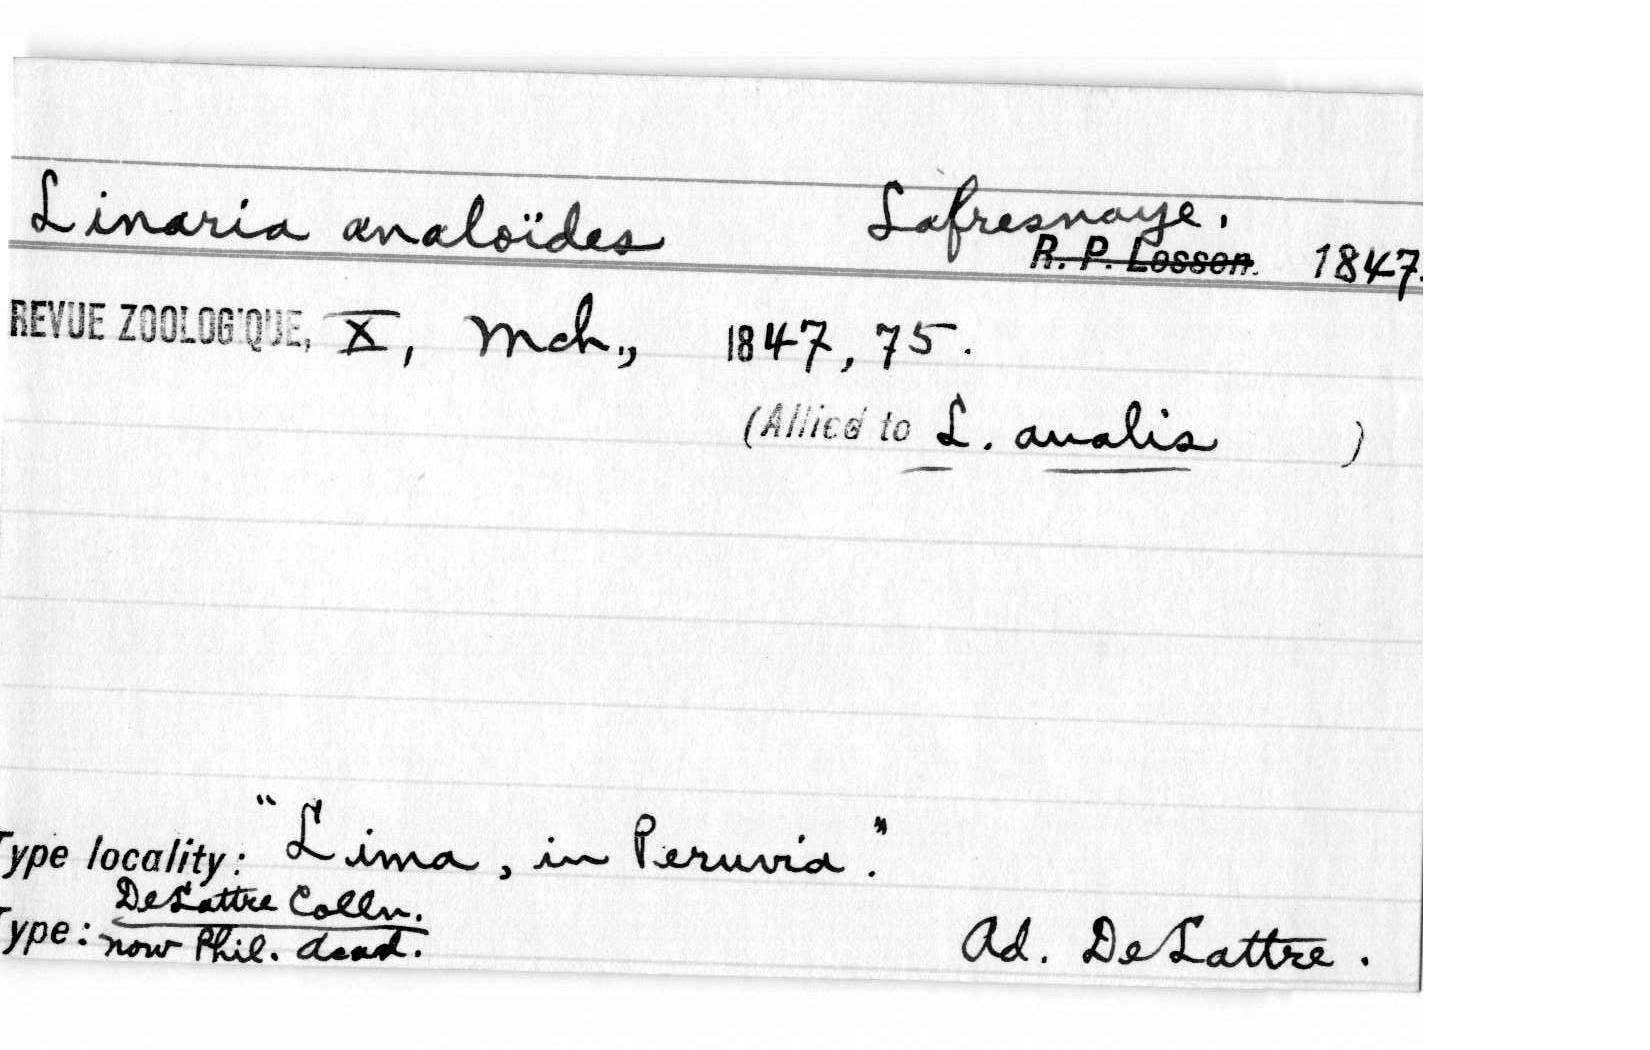 Linaria analoïdes Lafresnaye.
R. P. Lesson. 1847.
REVUE ZOOLOGIQUE, X, Mch., 1847, 75.
(Allied to L. analis )
Type locality: "Lima, in Peruvia."
DeLattre Colln.
Type: now Phil. Acad. Ad. DeLattre.